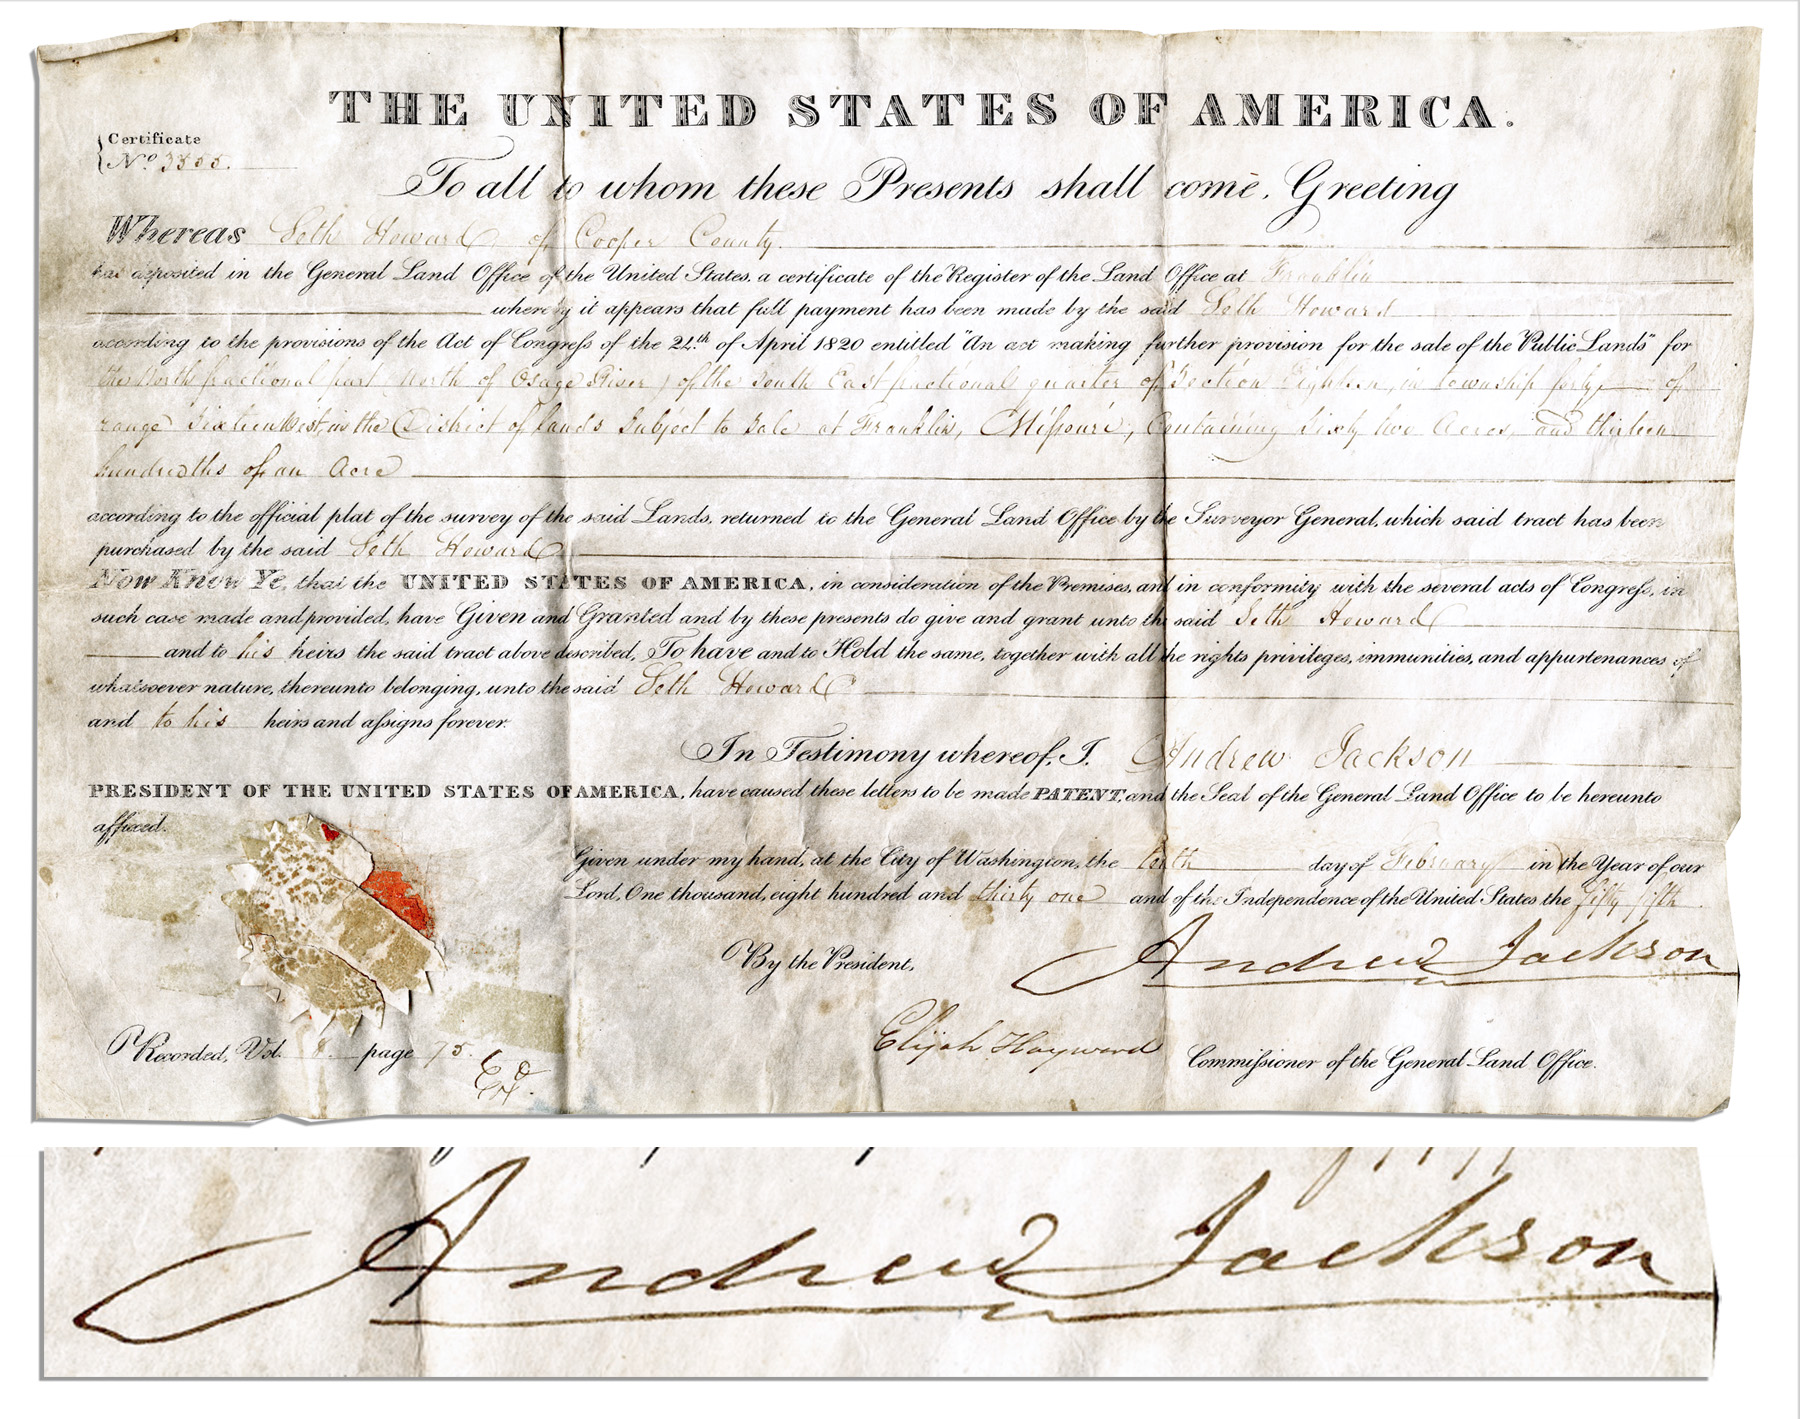 THE UNITED STATES OF AMERICA.
Certificate
No.
To all to whom these Presents shall come, Greeting
Whereas Seth Howard of Cooper County.
has deposited in the General Land Office of the United States, a certificate of the Register of the Land Office at Franklin
whereby it appears that full payment has been made by the said Seth Howard
according to the provisions of the Act of Congress of the 24th of April 1820 entitled "An act making further provision for the sale of the Public Lands" for
the North fractional part North of Osage River) of the South East fractional quarter of Section Eighteen, in township forty of
range Sixteen West, in the District of lands Subject to Sale at Franklin, Missouri, Containing Sixty two Acres, and thirteen
hundredths of an Acre
according to the official plat of the survey of the said Lands, returned to the General Land Office by the Surveyor General, which said tract has been
purchased by the said Seth Howard
Now Know Ye, that the UNITED STATES OF AMERICA, in consideration of the Premises, and in conformity with the several acts of Congress, in
such case made and provided, have Given and Granted and by these presents do give and grant unto the said Seth Howard
and to his heirs the said tract above described, To have and to Hold the same, together with all the rights privileges, immunities, and appurtenances of
whatsoever nature, thereunto belonging, unto the said Seth Howard
and to his heirs and assigns forever.
In Testimony whereof, I, Andrew Jackson
PRESIDENT OF THE UNITED STATES OF AMERICA, have caused these letters to be made PATENT, and the Seal of the General Land Office to be hereunto
affixed.
Given under my hand, at the City of Washington, the tenth day of February in the Year of our
Lord, One thousand, eight hundred and thirty one and of the Independence of the United States the fifty fifth.
Andrew Jackson
By the President,
Elijah Hayward Commissioner of the General Land Office.
Recorded, Vol. 8. page 75.
Andrew Jackson